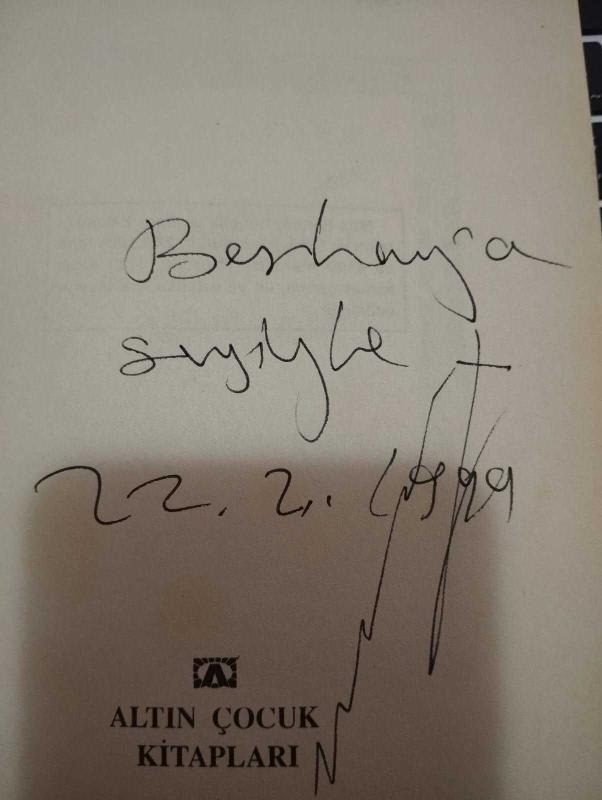 sevgiyle
22.2.1999
ALTIN ÇOCUK
KİTAPLARI